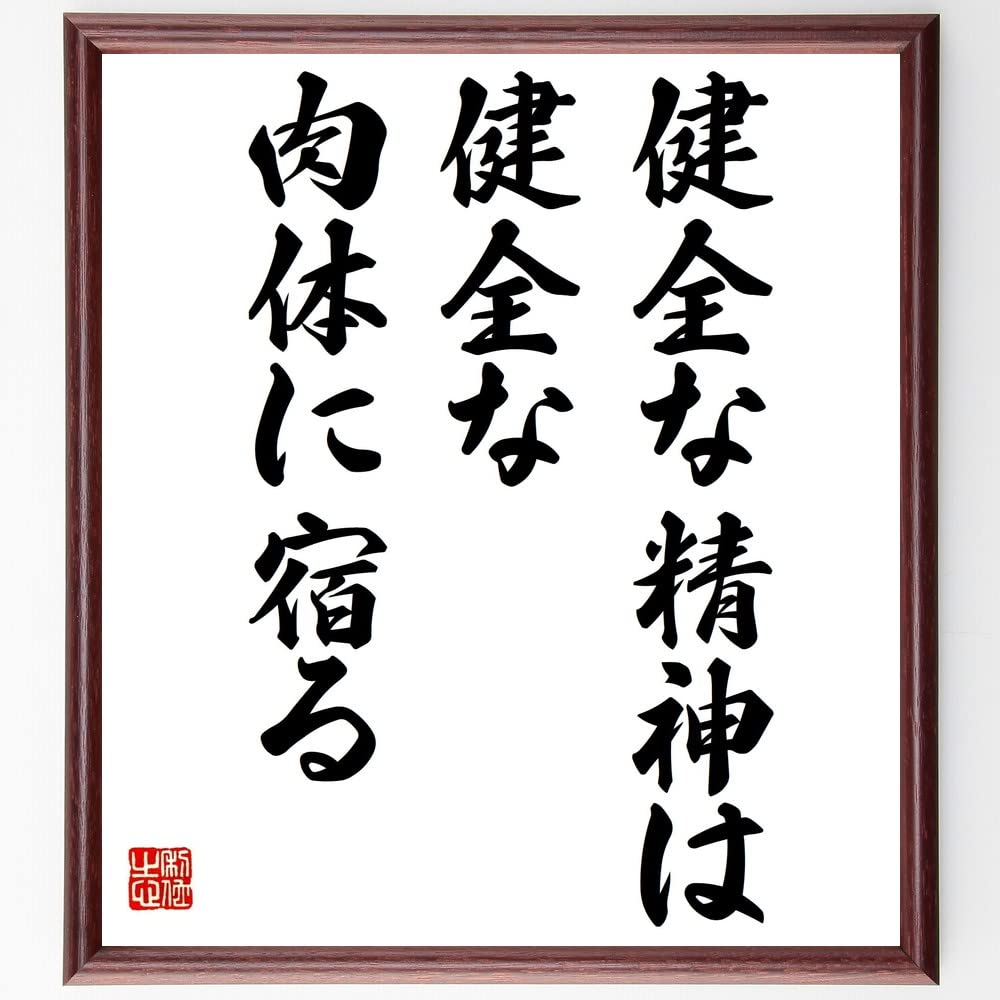 健全な精神は
健全な
肉体に宿る